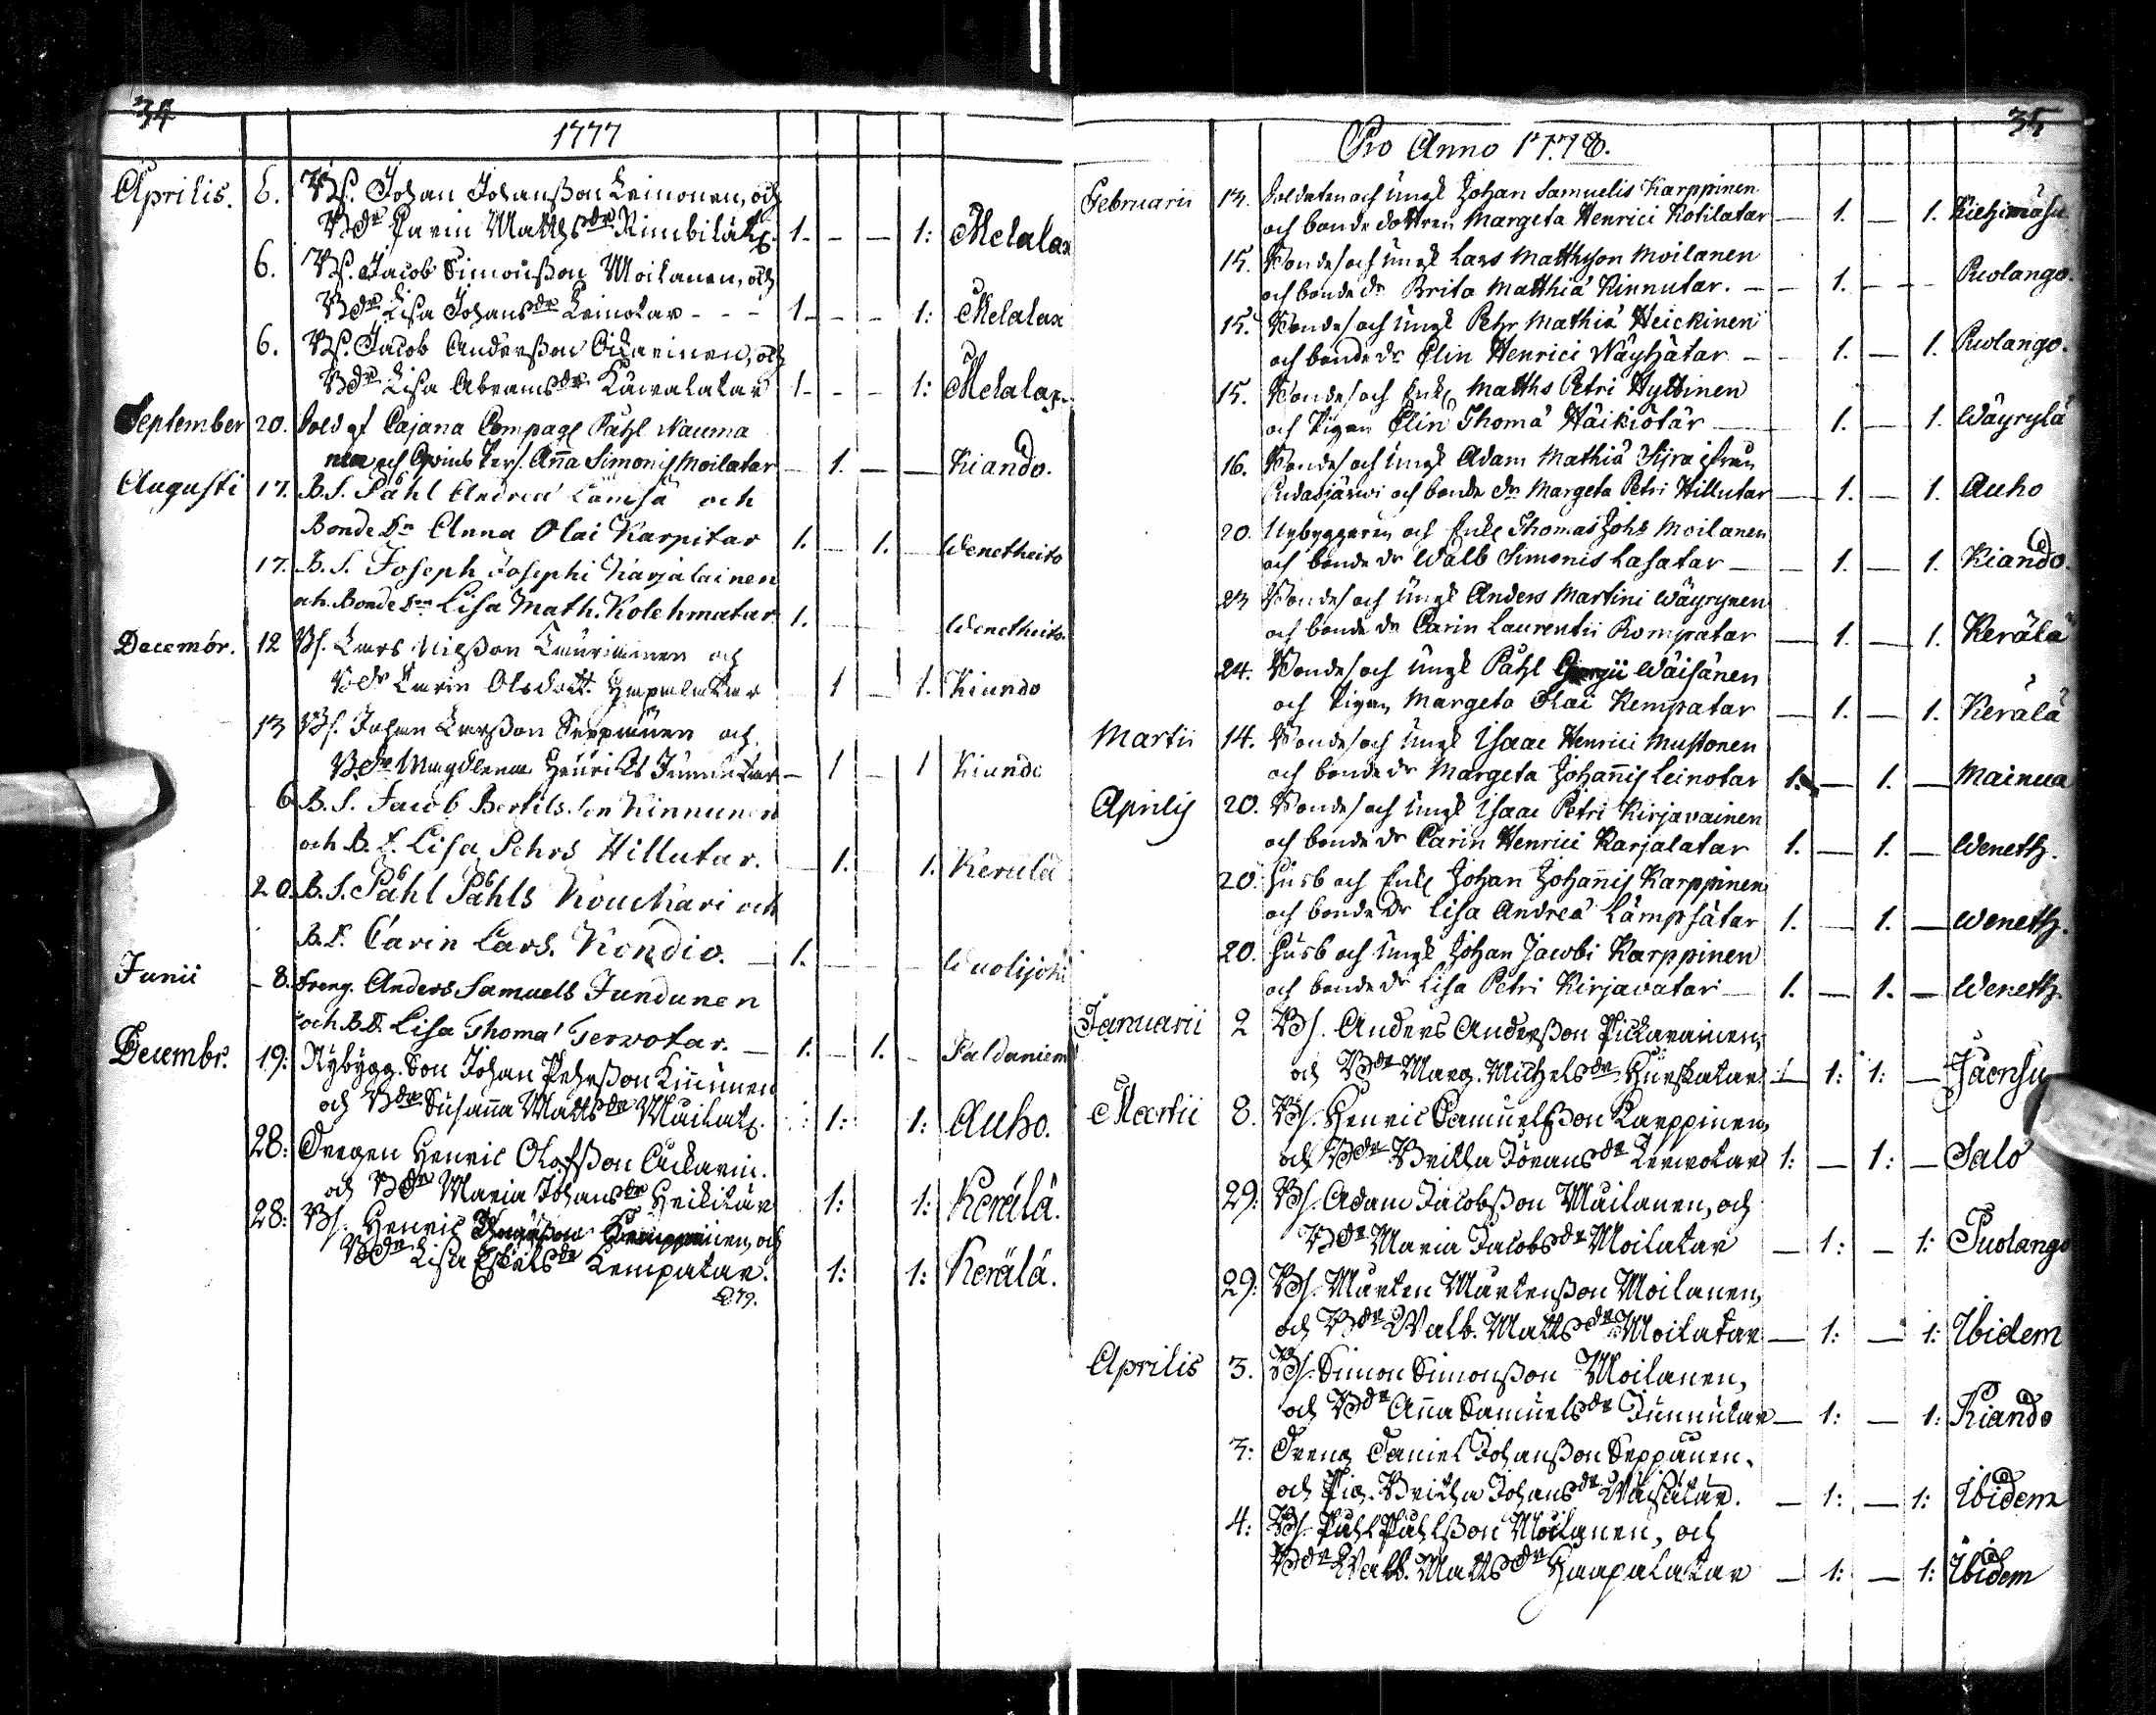 34
1777
Aprilis. 6. Bs. Johan Johansson Leinonen, och
Bdr Carin Matthsdr Rimbilät. 1. - — 1: Melalax
6. Bs. Jacob Simonsson Moilanen, och
Bdr Lisa Johansdr Leinotar - - - 1 - - 1: Melalax
6. Bs. Jacob Andersson Oikarinen, och
Bdr Lisa Abramsdr Kuivalatar 1 - - 1: Melalax
September 20. Sold af Cajana Compagn Påhl Nauma
nen och Anna Simonis Moilatar — 1. — — Kiando.
Augusti 17. B. S. Påhl Andreæ Lämsä och
Bonde Dr Anna Olai Karpitar 1. — 1. — Wenetheito
17. B. S. Joseph Josephi Karjalainen
och Bonde Dr Lisa Math. Kolehmatar 1. Wenetheito.
Decembr. 12 Bs. Lars Nilsson Lauriainen och
Bdr Carin Olsdott. Haapalatar 1 — 1. Kiando
13 Bs. Johan Larsson Seppänen och
Bdr Magdlena Henriks Juntutar — 1 — 1 Kiando
6 B. S. Jacob Bertils. son Kinnunen
och B. D. Lisa Pehrs Hillutar. — 1. 1. Kerälä
20. B. S. Påhl Påhls Kouckari och
B. D. Carin Lars. Kondio. — 1. Wuolijoki
Junii 8. Dreng. Anders Samuels Jundunen
och B. D. Lisa Thomæ Tervotar. — 1. — 1. - Paldaniemi
Decembr. 19: Nybygg. Son Johan Pehrsson Kinnunen
och Bdr Susanna Mattsdr Muilat. 1: 1: Auho.
28: Drengen Henric Olofsson Oikarin.
och Bdr Maria Johansdr Heikitär 1: 1: Kerälä.
28: Bs. Henric Kemppainen, och
Bdr Lisa Eskelsdr Kempatar. 1: 1: Kerälä.
35
Pro Anno 1778.
Februarii 13. Soldaten och Ungk Johan Samuelis Karppinen
och bonde dottren Margeta Henrici Kotilatar — 1. — 1. Kiehimäsu
15. Bondes. och Ungk Lars Matthson Moilanen
och bonde dr Brita Matthiæ Kinnutar. — 1. - - Puolango.
15. Bondes. och Ungk Pehr Mathiæ Heickinen
och bonde dr Elin Henrici Väyhätar — 1. — 1. Puolango.
15. Bondes. och Enkl Matths Petri Hyttinen
och Pigan Elin Thomæ Häikiötär — 1. — 1. Wäyrylä
16. Bondes. och Ungk Adam Mathiæ Sijra ifrån
Pudasjärvi och bonde dr Margeta Petri Hillutar — 1. — 1. Auho
20. Nybyggaren och Enkl Thomas Johs Moilanen
och bonde dr Walb Simonis Lasatar — 1. — 1. Kiando.
23 Bondes. och Ungk Anders Martini Wäyrynen
och bonde dr Carin Laurentii Kompatar — 1. — 1. Kerälä
24. Bondes. och Ungk Påhl Georgii Wäisänen
och Pigan Margeta Olai Kempatar — 1. — 1. Kerälä
Martii 14. Bondes. och Ungk Isaac Henrici Mustonen
och bonde dr Margeta Johannis Leinotar 1. — 1. — Mainua
Aprilis 20. Bondes. och Ungk Isaac Petri Kirjavainen
och bonde dr Carin Henrici Karjalatar 1. — 1. — Weneth.
20. Husb och Enkl Johan Johannis Karppinen
och bonde dr Lisa Andreæ Lämpsätar 1. — 1. — Weneth.
20. Husb och Ungk Johan Jacobi Karppinen
och bonde dr Lisa Petri Kirjavatar — 1. — 1. — Weneth
Januarii 2 Bs. Anders Andersson Pickarainen,
och Bdr Marg. Michelsdr Hurskatar — 1: 1: — Jaensu
Martii 8. Bs. Henric Samuelsson Karppinen,
och Bdr Britha Göransdr Tervotar 1: — 1: — Salo
29: Bs. Adam Jacobsson Muilanen, och
Bdr Maria Jacobsdr Moilatar — 1: — 1: Puolango
29: Bs. Mårten Mårtensson Moilanen,
och Bdr Walb. Mattsdr Moilatar — 1: — 1: Ibidem
Aprilis 3. Bs. Simon Simonsson Moilanen,
och Bdr Anna Samuelsdr Juntutar — 1: — 1: Kiando
3: Dreng Daniel Johansson Seppänen.
och Pig. Britha Johansdr Wäisätär. — 1: — 1: Ibidem
4: Bs. Påhl Påhlsson Moilanen, och
Bdr Walb. Mattsdr Haapalatar — 1: — 1: Ibidem